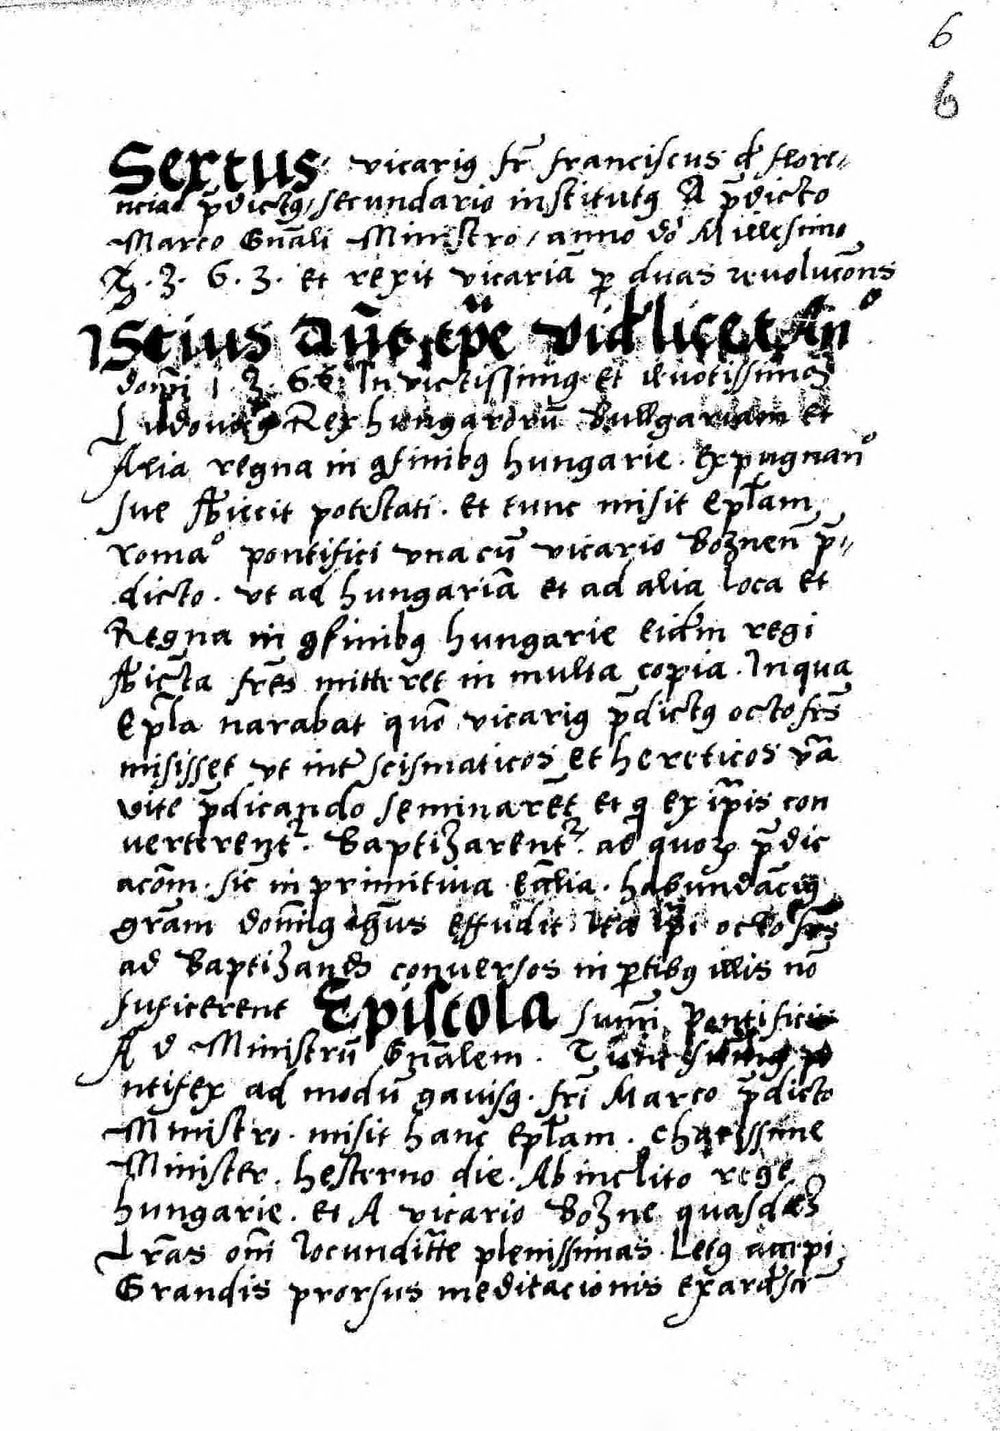 6
6
Sextus vicariꝰ fr̃ franciscus đ flore/
ncia p̃dictꝰ/ secundario institutꝰ A p̃dicto
Marco Gñali Ministro/ anno dõ Millesimo
3. 6. 3. et rexit vicariã ꝑ duas reuolucõns
Istius Aũt tp̃e vidꝫlicet Anº
domĩ 1. 3. 66 Invictissimꝰ et deuotissimꝰ
Ludouicꝰ Rex hungarorũ Bullgariam et
Alia regna in ꝯfinibꝰ hungarie. Expugnanº
sue sb̃iecit potestati. Et tunc misit Epl̃am
romaº pontifici vna cũ vicario Boznen̄ p̃//
dicto. vt ad hungariã et ad alia loca et
Regna in ꝯfinibꝰ hungarie eidm̃ regi
sb̃iec̃ta fr̃es mitteret in multa copia. In qua
Ep̃la narabat quõ vicariꝰ p̃dictꝰ octo fr̃s
misisset vt int̃ scismaticos et hereticos v̄ãa
vite p̃dicando seminarẽt et q ex ip̃is con
uerterent᷑. Baptizarent᷑. ad quoꝝ p̃dic
acõm. sic in primitiua Ecc̃lia. habundãciꝰ
grãm domĩnꝰ ih̃us effudit Ita ip̃i octo fr̃s
ad Baptizandꝭ conuersos in ꝑtibꝰ illis nõ
suficerent Epistola sum̃i Pontificis
Ad Ministrũ Gñalem. Tunc summꝰ po
ntifex ad modũ gauisꝰ. fr̃i Marco p̃dicto
Ministro. misit hanc Epl̃am. Charissime
Minister. hesterno die. Ab inclito rege
hungarie. et A vicario Bozne quasdaꝫ
Lr̃as om̃i Iocundit̃te plenissimas. Letꝰ accepi
Grandis prorsus meditacionis exardesc̃